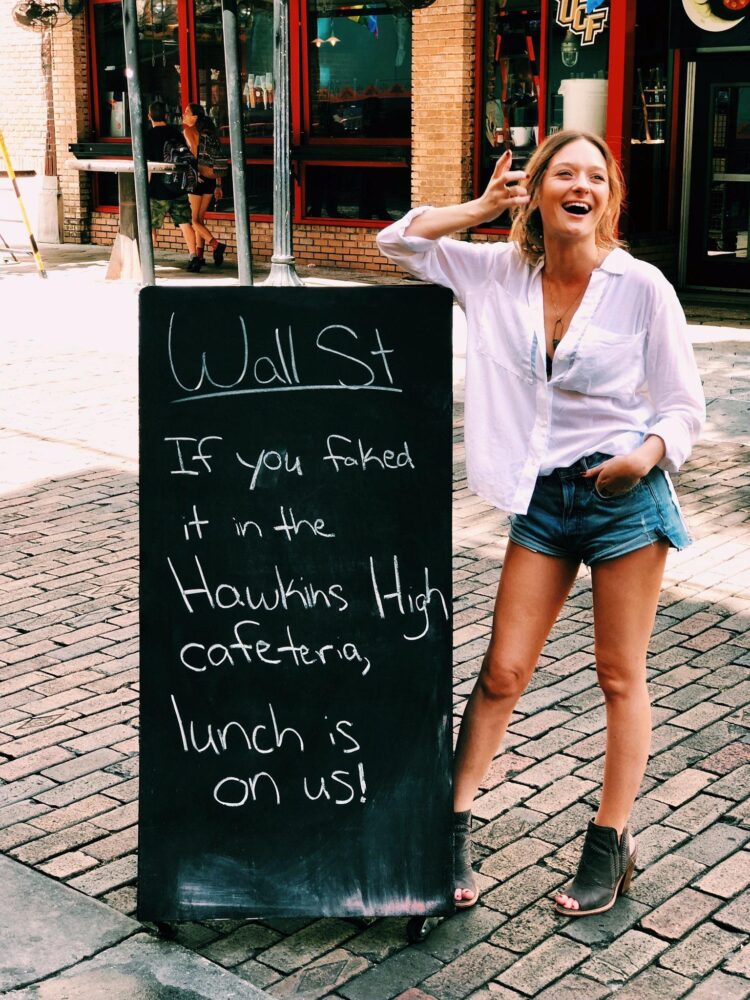 UCF
Wall St
If you faked
it in the
Hawkins High
cafeteria,
lunch is
on us!